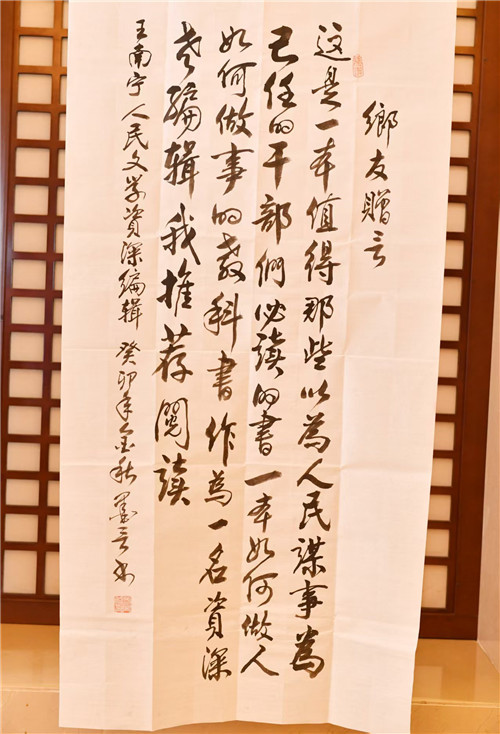 鄉友贈言
這是一本值得那些以為人民謀事為
己任的干部們必讀的書一本如何做人
如何做事的教科書作為一名資深
老編輯我推荐閱讀
王南宁人民文学資深編輯癸卯年金秋墨言书